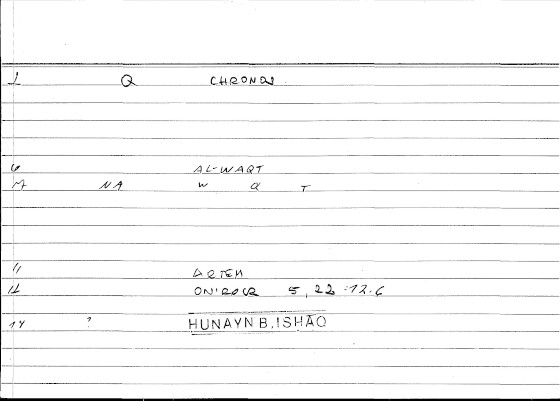 1 Q CHRONOS
6 AL-WAQT
M NA W Q T
11 ARTEM
12 ONIROCR 5,22 12.6
14 ? HUNAYN B. ISHAQ